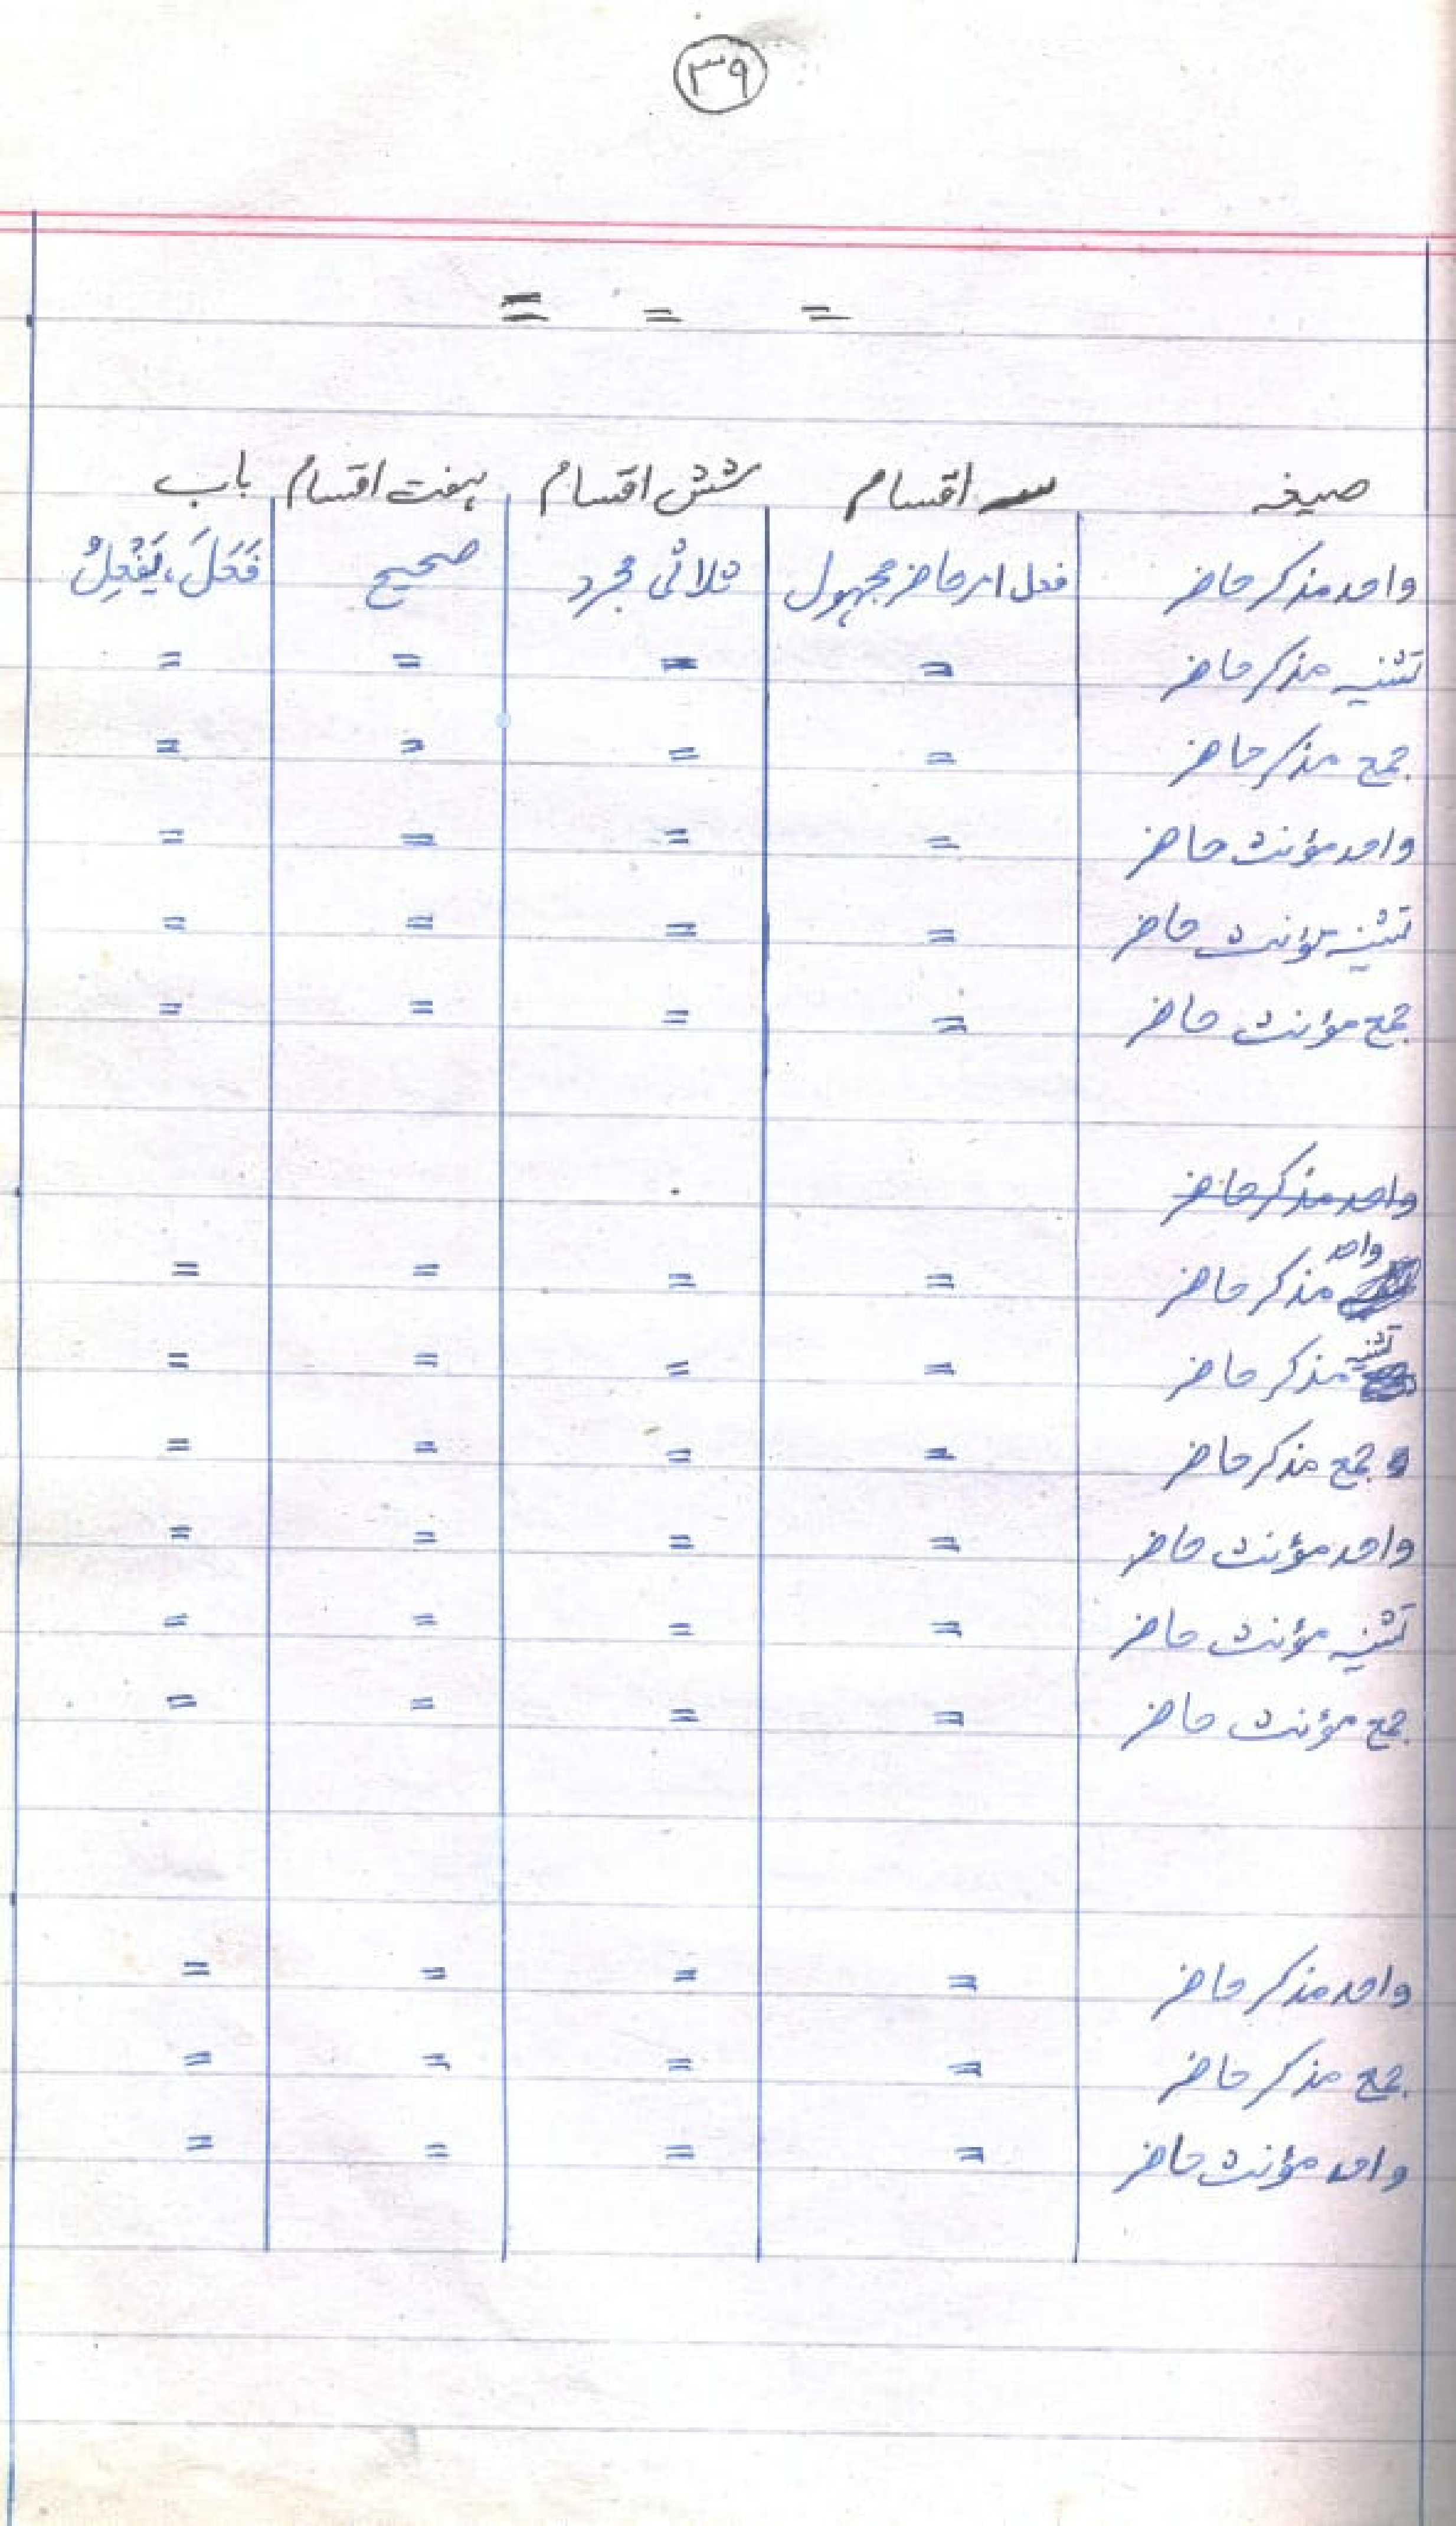 ٣٩
= = =
صیغہ سہ اقسام شش اقسام ہفت اقسام باب
واحد مذکر حاضر فعل امر حاضر مجہول ثلاثی مجرد صحیح فَعَلَ، يَفْعِلُ
تثنیہ مذکر حاضر = = = =
جمع مذکر حاضر = = = =
واحد مؤنث حاضر = = = =
تثنیہ مؤنث حاضر = = = =
جمع مؤنث حاضر = = = =
واحد مذکر حاضر
واحد مذکر حاضر = = = =
تثنیہ مذکر حاضر = = = =
جمع مذکر حاضر = = = =
واحد مؤنث حاضر = = = =
تثنیہ مؤنث حاضر = = = =
جمع مؤنث حاضر = = = =
واحد مذکر حاضر = = = =
جمع مذکر حاضر = = = =
واحد مؤنث حاضر = = = =